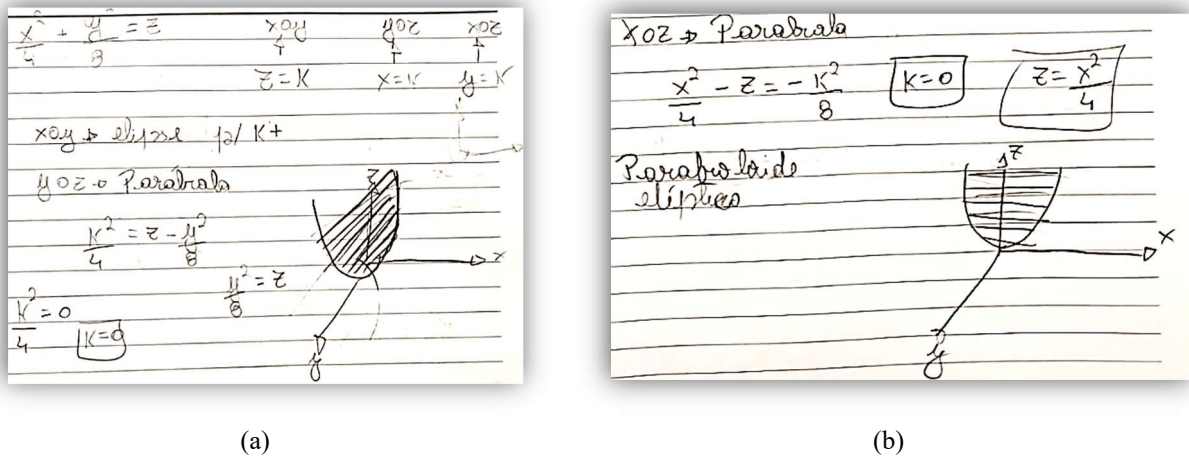 x²/4 + y²/8 = z xoy yoz xoz
z=K x=K y=K
xoy → elipse p/ K+
yoz → Parábrala
K²/4 = z - y²/8
y²/8 = z
K²/4 = 0 K=0
z
x
y
(a)
xoz → Parabrala
x²/4 - z = -K²/8 K=0 z = x²/4
Parabroloide
elíptico
z
x
y
(b)